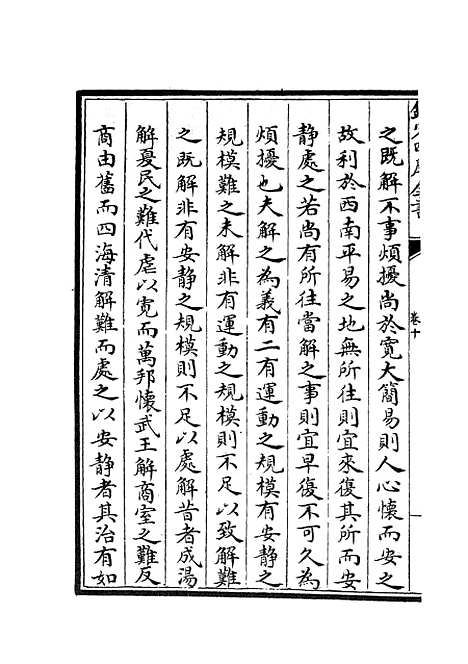 之既解不事煩擾尚於寛大簡易則人心懷而安之
故利於西南平易之地無所往則宜來復其所而安
静處之若尚有所往當解之事則宜早復不可久為
煩擾也夫解之為義有二有運動之規模有安静之
規模難之未解非有運動之規模則不足以致解難
之既解非有安静之規模則不足以處解昔者成湯
解夏民之難代虐以寛而萬邦懷武王解商室之難反
商由舊而四海清解難而處之以安静者其治有如
卷十